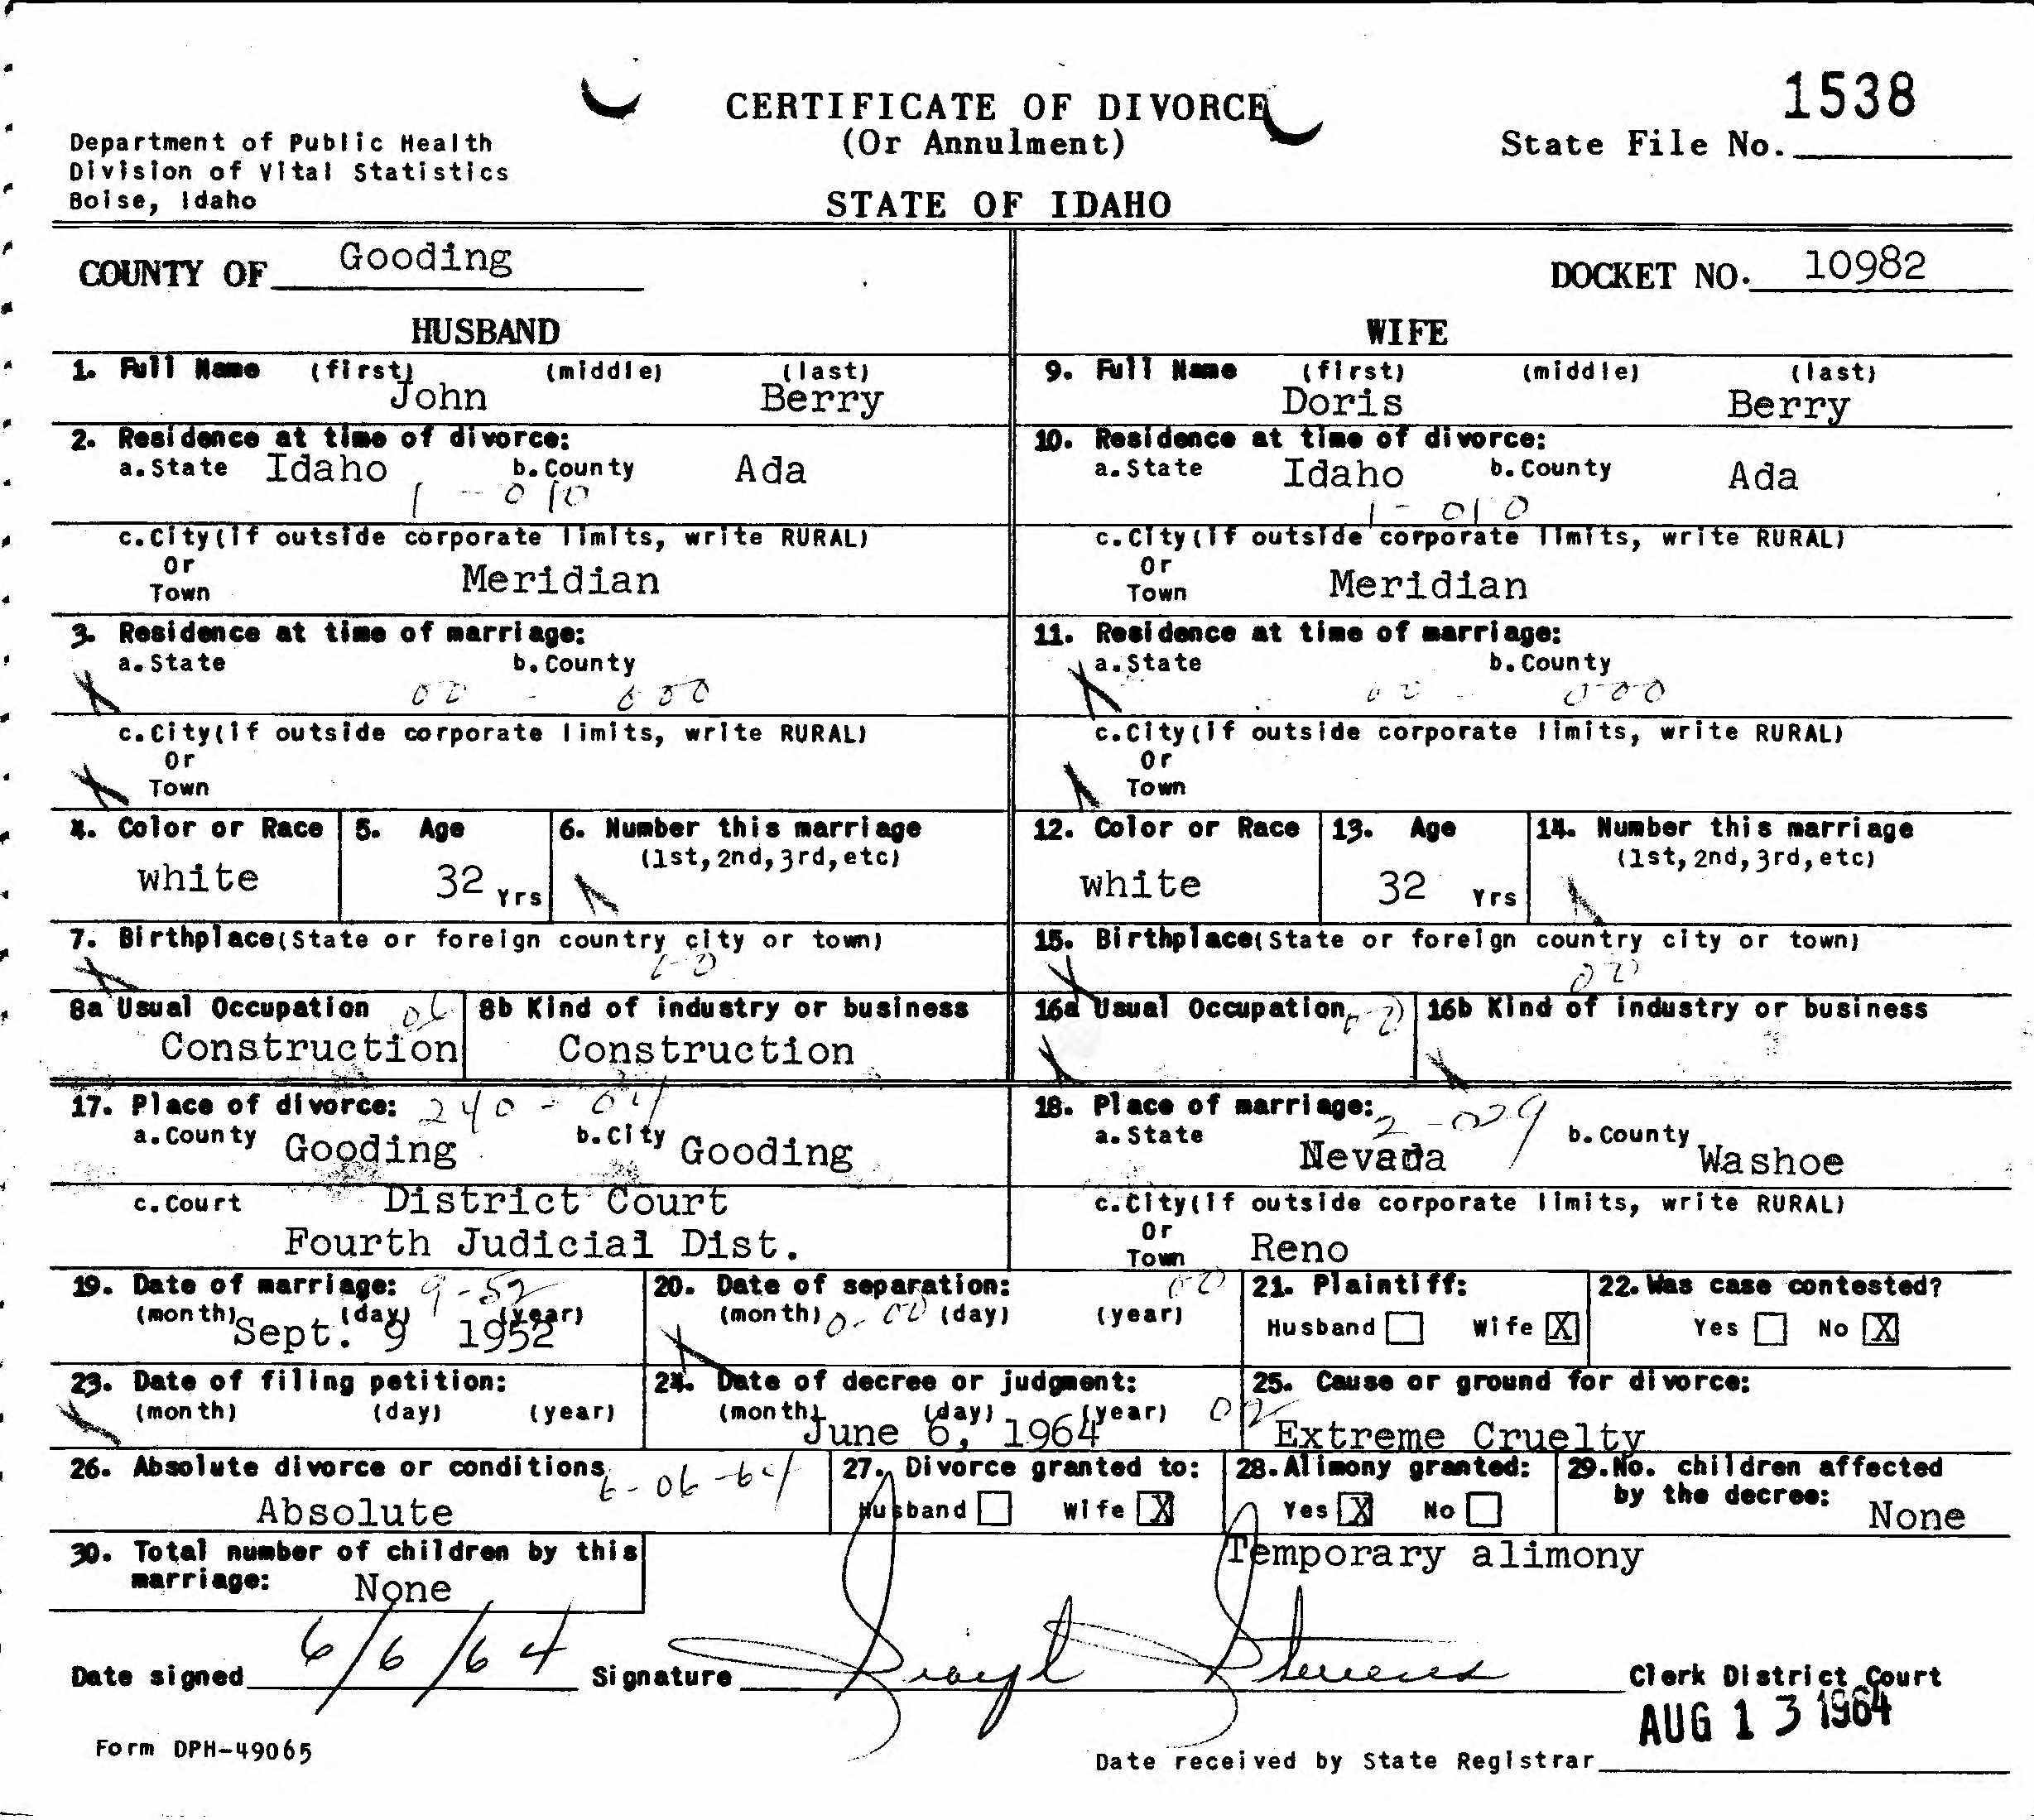 1538
CERTIFICATE OF DIVORCE
(Or Annulment)
State File No.
Department of Public Health
Division of Vital Statistics
Boise, Idaho
STATE OF IDAHO
COUNTY OF Gooding
DOCKET NO. 10982
HUSBAND
1. Full Name (first) (middle) (last)
John Berry
2. Residence at time of divorce:
a. State Idaho b. County Ada
1 - 010
c. City (if outside corporate limits, write RURAL)
Or
Town Meridian
3. Residence at time of marriage:
a. State b. County
00 - 000
c. City (if outside corporate limits, write RURAL)
Or
Town
4. Color or Race 5. Age 6. Number this marriage
(1st, 2nd, 3rd, etc)
white 32 Yrs
7. Birthplace (State or foreign country city or town)
8a Usual Occupation 06 8b Kind of industry or business
Construction Construction
WIFE
9. Full Name (first) (middle) (last)
Doris Berry
10. Residence at time of divorce:
a. State Idaho b. County Ada
1 - 010
c. City (if outside corporate limits, write RURAL)
Or
Town Meridian
11. Residence at time of marriage:
a. State b. County
00 - 000
c. City (if outside corporate limits, write RURAL)
Or
Town
12. Color or Race 13. Age 14. Number this marriage
(1st, 2nd, 3rd, etc)
white 32 Yrs
15. Birthplace (State or foreign country city or town)
00
16a Usual Occupation 16b Kind of industry or business
17. Place of divorce: 240 - 04
a. County Gooding b. City Gooding
c. Court District Court
Fourth Judicial Dist.
18. Place of marriage: 2 - 029
a. State Nevada b. County Washoe
c. City (if outside corporate limits, write RURAL)
Or
Town Reno
19. Date of marriage: 9-52
(month) (day) (year)
Sept. 9 1952
20. Date of separation: 00
(month) 0-00 (day) (year)
21. Plaintiff:
Husband Wife X
22. Was case contested?
Yes No X
23. Date of filing petition:
(month) (day) (year)
24. Date of decree or judgment:
(month) (day) (year)
June 6, 1964
25. Cause or ground for divorce:
02 Extreme Cruelty
26. Absolute divorce or conditions 6-06-64
Absolute
27. Divorce granted to:
Husband Wife X
28. Alimony granted:
Yes X No
Temporary alimony
29. No. children affected
by the decree: None
30. Total number of children by this
marriage: None
Date signed 6/6/64 Signature Stevens Clerk District Court
AUG 13 1964
Form DPH-49065
Date received by State Registrar